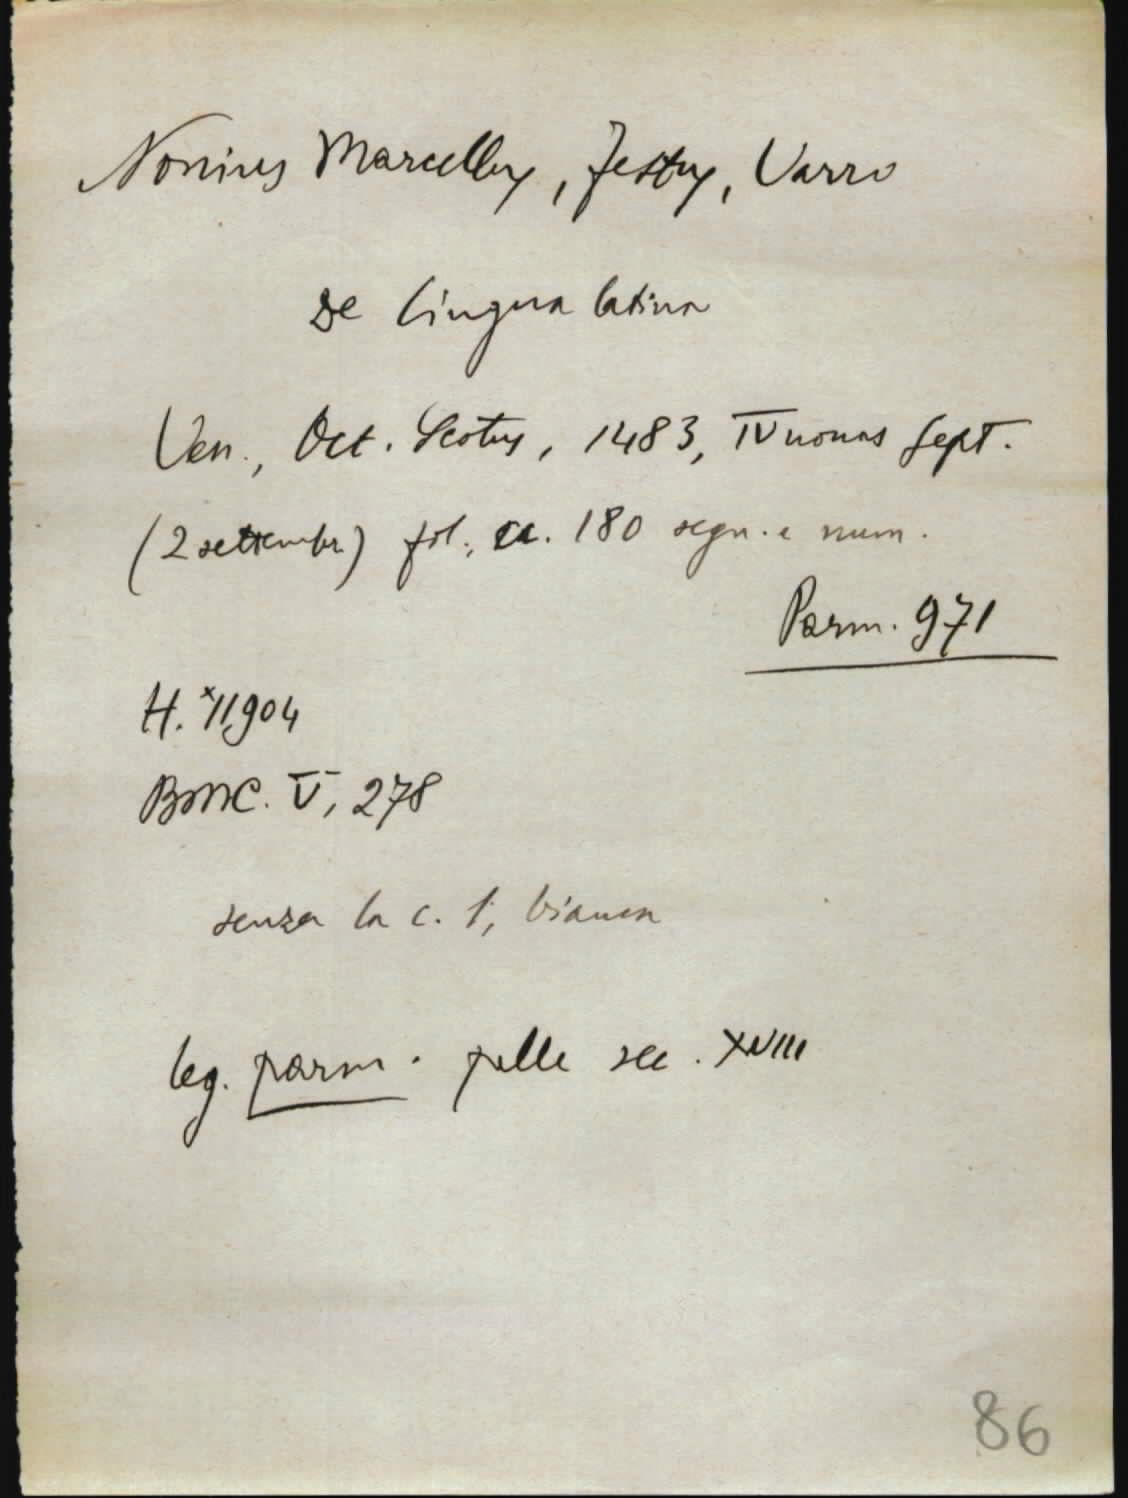 Nonius Marcellus, Festus, Varro
De lingua latina
Ven., Oct. Scotus, 1483, IV nonas Sept.
(2 settembr.) fol., cc. 180 segn. e num.
Parm. 971
H. *11904
BMC. V, 278
senza la c. 1, bianca
leg. parm. pelle sec. XVIII
86